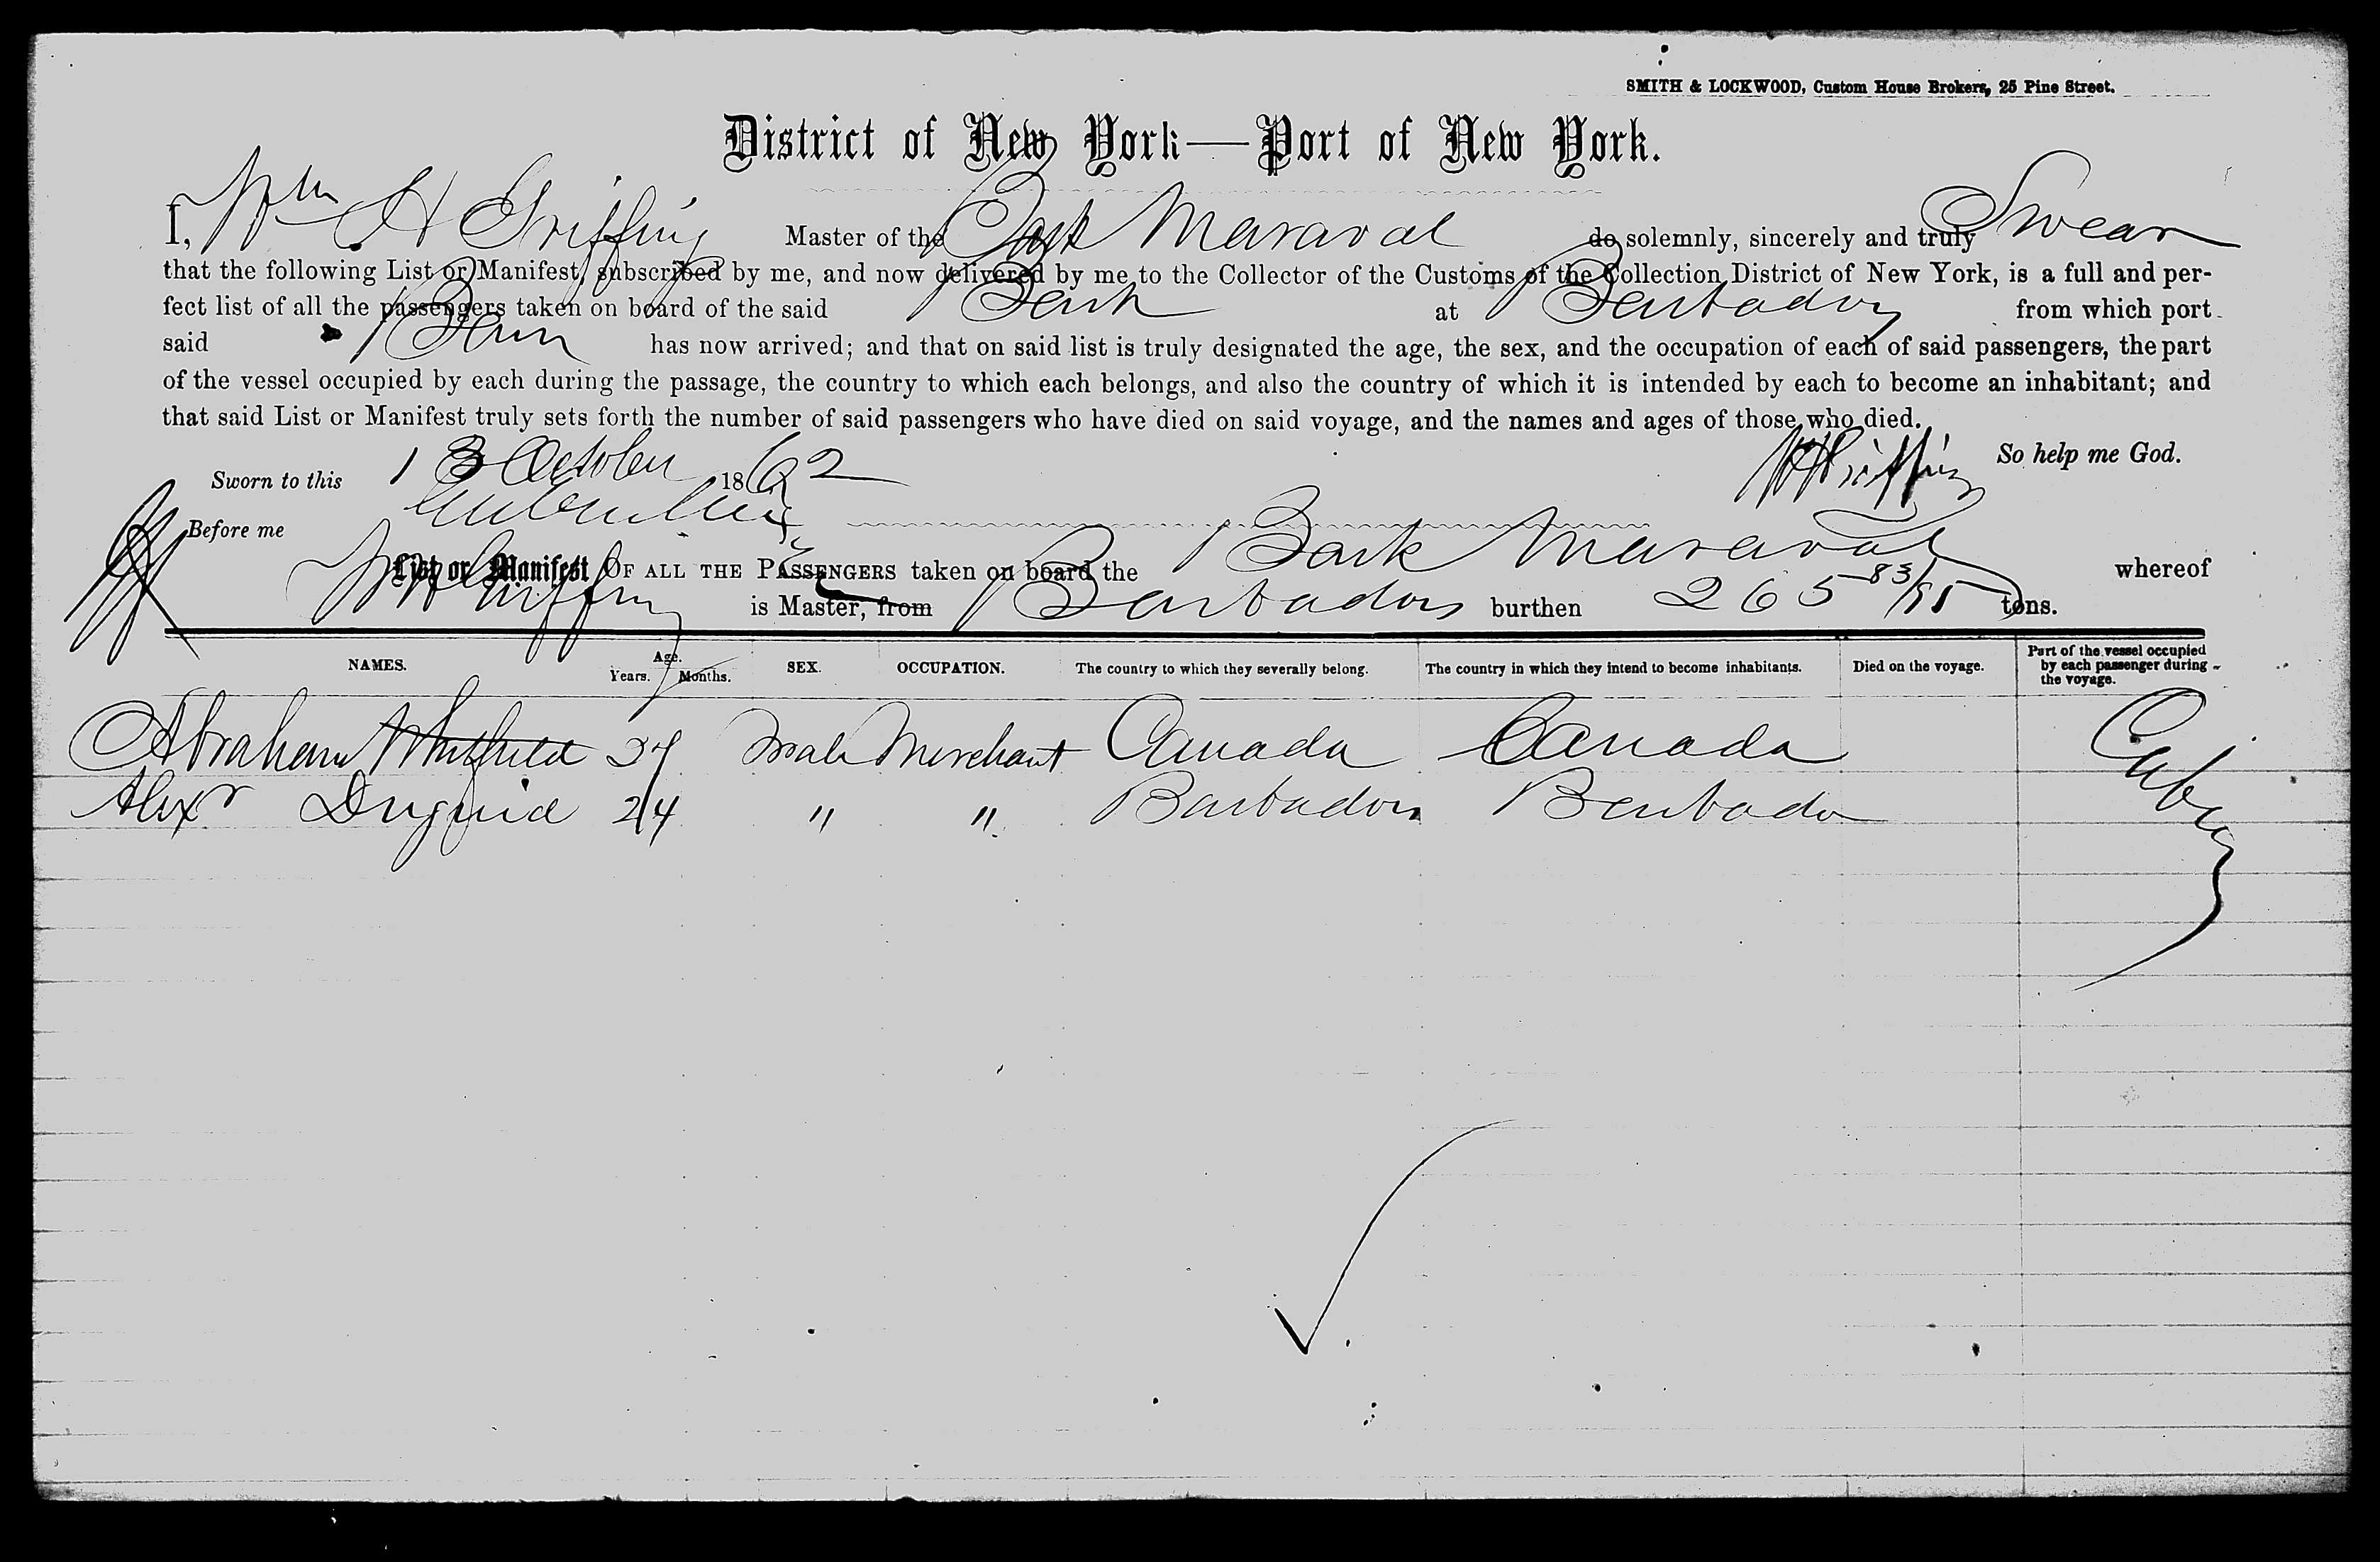 SMITH & LOCKWOOD, Custom House Brokers, 25 Pine Street.
District of New York—Port of New York.
I, Wm H Griffing Master of the Bark Maraval do solemnly, sincerely and truly Swear
that the following List or Manifest, subscribed by me, and now delivered by me to the Collector of the Customs of the Collection District of New York, is a full and per-
fect list of all the passengers taken on board of the said Bark at Barbados from which port
said Bark has now arrived; and that on said list is truly designated the age, the sex, and the occupation of each of said passengers, the part
of the vessel occupied by each during the passage, the country to which each belongs, and also the country of which it is intended by each to become an inhabitant; and
that said List or Manifest truly sets forth the number of said passengers who have died on said voyage, and the names and ages of those who died.
Sworn to this 13 October 1862 WH Griffing So help me God.
Before me
List or Manifest OF ALL THE PASSENGERS taken on board the Bark Maraval whereof
WH Griffing is Master, from Barbados burthen 265 83/95 tons.
NAMES. Age. Years. Months. SEX. OCCUPATION. The country to which they severally belong. The country in which they intend to become inhabitants. Died on the voyage. Part of the vessel occupied by each passenger during the voyage.
Abraham Whitfield 37 Male Merchant Canada Canada Cabin
Alexr Duguid 24 " " Barbados Barbado